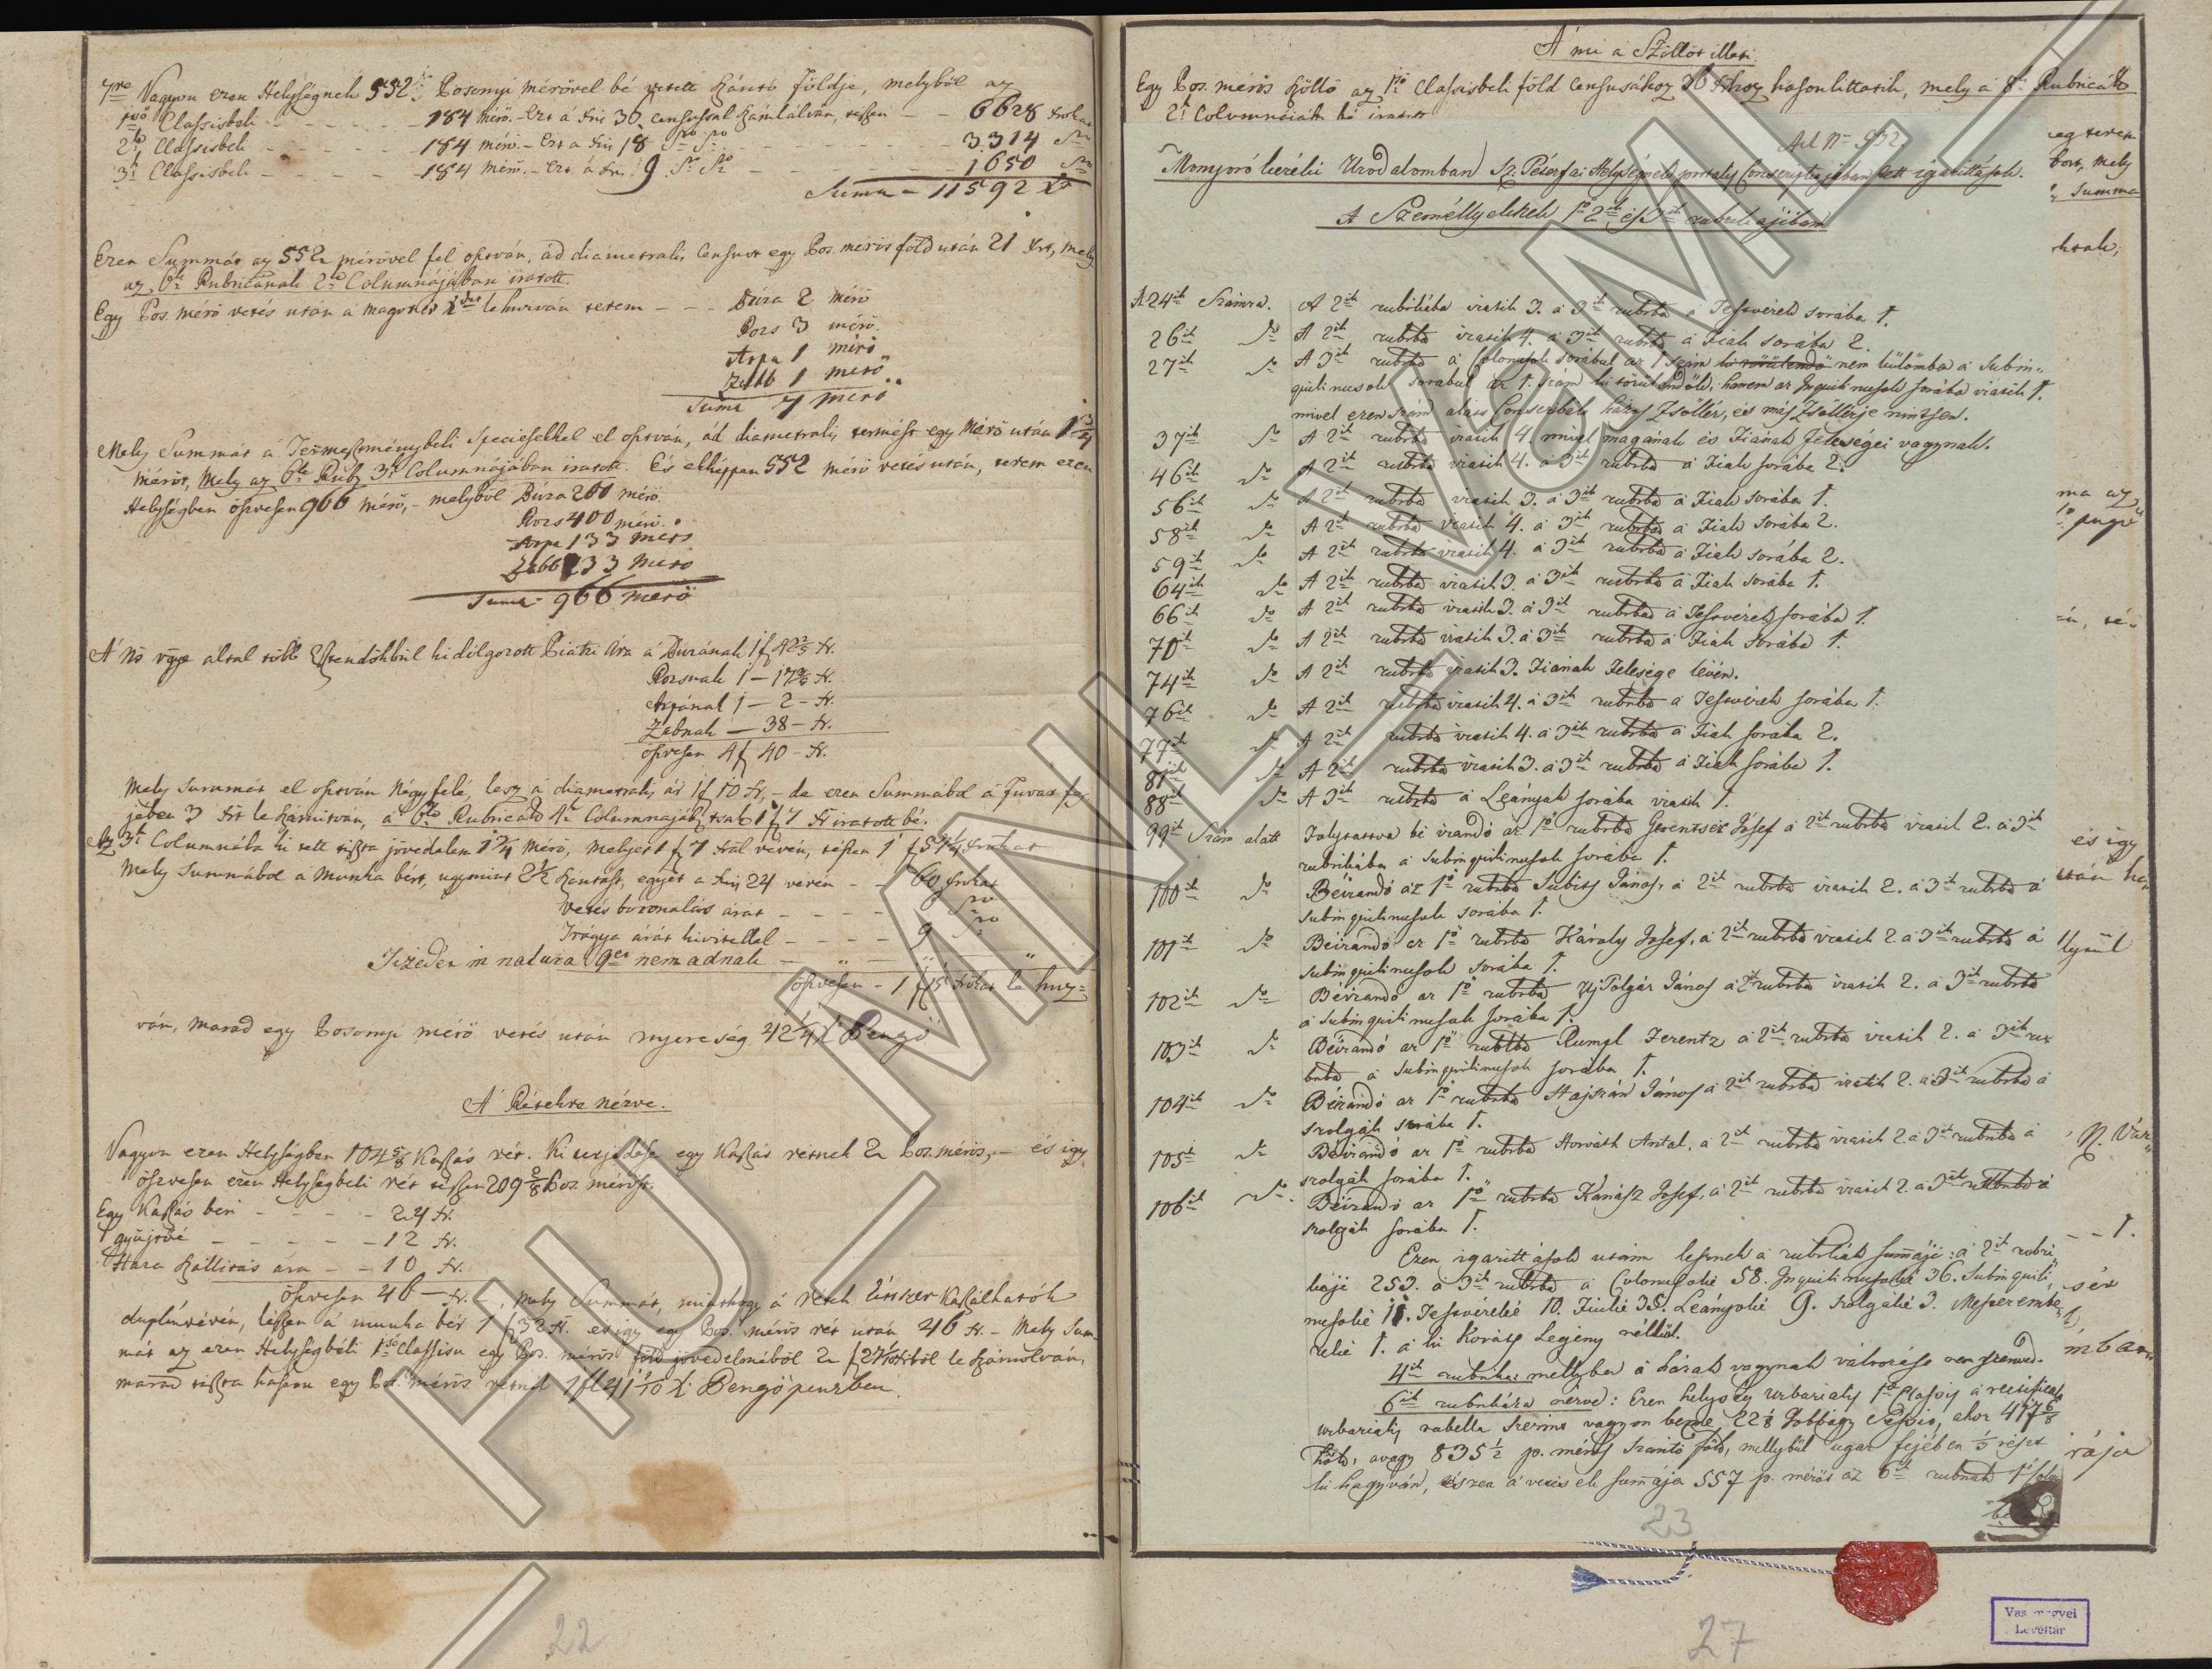 7re Vagyon ezen Helységnek 552 Posonyi mérővel bé vetett szántó földje, melyből az
1ső Classisbeli - - - 184 mérő. - Ezt a Xris 36 censussal számlálván, tészen - - 6628 Xrokat
2k Classisbeli - - - 184 mérő. - Ezt a Xris 18 - - - 3314
3k Classisbeli - - - 184 mérő. - Ezt a Xris 9 - - - 1650
Suma - 11592 X
Ezen Summát az 552 mérővel fel osztván, ád diametralis Censust egy Pos. mérős föld után 21 Xrt, mely
az 6k Rubricának 2k Columnájában iratott.
Egy Pos. mérő vetés után a magot le huzván terem - - - Búza 2 mérő
Rozs 3 mérő.
Árpa 1 mérő
Zabb 1 mérő
Suma 7 mérő
Mely Summát a Termesztménybeli Speciesekkel el osztván, ád diametralis termést egy Mérő után 1 3/4
mérőt, Mely az 6k Rub. 3k Columnájában iratott. És ekképpen 552 mérő vetés után, terem ezen
Helységben öszvesen 966 mérő, - melyből Búza 200 mérő.
Rozs 400 mérő.
Árpa 133 mérő
Zabb 233 mérő
Suma - 966 mérő
A Ns Vgye által több Esztendőkbül ki dolgozott Piatzi Ára a Búzának 1 f 42 2/5 Xr.
Rozsnak 1 - 17 Xr.
Árpának 1 - 2 - Xr.
Zabnak - 38 - Xr.
öszvesen 4 f 40 - Xr.
Mely Summát el osztván Négy felé, lesz a diametralis ár 1 f 10 Xr, - de ezen Summából a Fuvar fe-
jében 3 Xrt le számitván, a 6k Rubricának 4k Columnájáb. tsak 1 f 7 Xr iratott bé.
Az 3k Columnába ki tett tiszta jövedelem 1 3/4 mérő, melyet 1 f 7 Xrál vévén, tészen 1 f 57 1/4 Xrokat
Mely Summából a Munka bért, ugymint 2 1/2 szántást, egyet a Xris 24 vévén - - 60 Xrokat
Vetés boronálás árát - - - -
Trágya árát kivitellel - - - - 9
Tizedet in natura 9et nem adnak - " - " "
öszvesen - 1 f 15 Xrokat le huz-
ván, marad egy Posonyi mérő vetés után nyereség 42 1/4 X Pengő
A' Rétekre nézve.
Vagyon ezen Helységben 104 5/8 Kaszás rét. Ki ujjadása egy Kaszás rétnek 2 Pos. mérős, - és igy
öszvesen ezen Helységbeli rét tészen 209 2/8 Pos. mérőst.
Egy Kaszás béri - - - - 24 Xr.
gyüjtőé - - - - - 12 Xr.
Haza szállitás ára - - 10 Xr.
öszvesen 46 - Xr. - , mely Summát, minthogy a rétek kétszer kaszálhatók
duplén vévén, lészen a munka bér 1 f 32 Xr. és igy egy Pos. mérős rét után 46 Xr. - Mely Sum-
mát az ezen Helységbéli 1ső Classisu egy Pos. mérős föld jövedelméből 2 f 27 Xrból le számolván,
marad tiszta haszon egy Pos. mérős rétnél 1 fl 41 1/10 X. Pengő pénzben.
22
A mi a Szöllőt illeti.
Egy Pos. mérős szöllő az 1ső Classisbeli föld Censusához 36 Xrhoz hasonlittatik, mely a 8k Rubricák
2k Columnáiáb. ki iratott
Ad N 932
Monyorókeréki Uradalomban Sz: Péterfai Helységnek portalis Conscriptiojában tett igazittások.
A Személlyeknek 1ő 2ik és 3ik rubrikájában
A 24ik Számra. A 2ik rubrikába iratik 3. a 3ik rubrba a Testvérek sorába 1.
26ik do A 2ik rubrba iratik 4. a 3ik rubrba a Fiak sorába 2.
27ik do A 3ik rubrba a Colonusok sorábul az 1. szám ki törülendő nem külömben a Subin-
quilinusok sorábul az 1. szám ki törültendők, hanem az Inquilinusok sorába iratik 1.
mivel ezen szám alatt Conscribált házas Zsöllér, és más Zsöllérje nintsen.
37ik do A 2ik rubrba iratik 4. mivel magának és Fiának Feleségei vagynak.
46ik do A 2ik rubrba iratik 4. a 3ik rubrba a Fiak sorába 2.
56ik do A 2ik rubrba iratik 3. a 3ik rubrba a Fiak sorába 1.
58ik do A 2ik rubrba iratik 4. a 3ik rubrba a Fiak sorába 2.
59ik do A 2ik rubrba iratik 4. a 3ik rubrba a Fiak sorába 2.
64ik do A 2ik rubrba iratik 3. a 3ik rubrba a Fiak sorába 1.
66ik do A 2ik rubrba iratik 3. a 3ik rubrba a Testvérek sorába 1.
70ik do A 2ik rubrba iratik 3. a 3ik rubrba a Fiak sorába 1.
74ik do A 2ik rubrba iratik 3. Fiának Felesége lévén.
76ik do A 2ik rubrba iratik 4. a 3ik rubrba a Testvérek sorába 1.
77ik do A 2ik rubrba iratik 4. a 3ik rubrba a Fiak sorába 2.
81ik do A 2ik rubrba iratik 3. a 3ik rubrba a Fiak sorába 1.
88ik do A 3ik rubrba a Leányok sorába iratik 1.
99ik Szám alatt Folytatva bé irandó az 1ő rubrba Gerentsér Josef a 2ik rubrba iratik 2. a 3ik
rubrikába a Subinquilinusok sorába 1.
100ik do Béirandó az 1ő rubrba Subits János, a 2ik rubrba iratik 2. a 3ik rubrba a
Subinquilinusok sorába 1.
101ik do Béirandó az 1ő rubrba Károly Josef, a 2ik rubrba iratik 2. a 3ik rubrba a
Subinquilinusok sorába 1.
102ik do Béirandó az 1ő rubrba Uj Polgár János a 2ik rubrba iratik 2. a 3ik rubrba
a Subinquilinusok sorába 1.
103ik do Béirandó az 1ő rubrba Rumpl Ferentz a 2ik rubrba iratik 2. a 3ik ru-
brba a Subinquilinusok sorába 1.
104ik do Béirandó az 1ő rubrba Hajszán János a 2ik rubrba iratik 2. a 3ik rubrba a
szolgák sorába 1.
105ik do Béirandó az 1ő rubrba Horváth Antal, a 2ik rubrba iratik 2. a 3ik rubrba a
szolgák sorába 1.
106ik do Béirandó az 1ő rubrba Kanász Josef, a 2ik rubrba iratik 2. a 3ik rubrba a
szolgák sorába 1.
Ezen igazittások után lesznek a rubrikák summáji: a 2ik rubri-
káji 253. a 3ik rubrba a Colonusoké 58. Inquilinusoké 36. Subinquili-
nusoké 11. Testvéreké 10. Fiuké 35. Leányoké 9. szolgáké 3. Mesterembe-
reké 1. a ki Kovács Legény nélkül.
4ik rubrika: mellyben a házak vagynak változást nem szenved.
6ik rubrikára nézve: Ezen helység Urbarialis 1ső Classis a rectificált
urbarialis tabella szerint vagyon benne 22 1/8 Jobbágy Sessio, ahoz 417 6/8
hold, avagy 835 1/2 p. mérős szántó föld, mellybül ugar fejében 1/3 részt
ki hagyván, tészen a vetés ek summája 557 p. mérőt az 6ik rubrnak 1ső
23
27
Vas megyei
Levéltár
HU_MNL_VaML_I